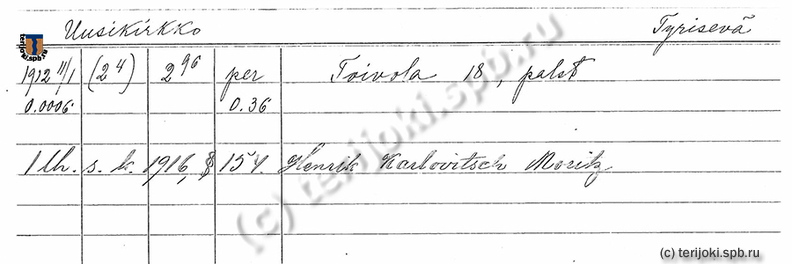 Uusikirkko Tyrisevä
1912 11/1 (2⁴) 2⁹⁶ per Toivola 18, palst
0.0006 0.36
1 lh. s. k. 1916, § 154. Henrik Karlovitsch Moritz
(c) terijoki.spb.ru
(c) terijoki.spb.ru